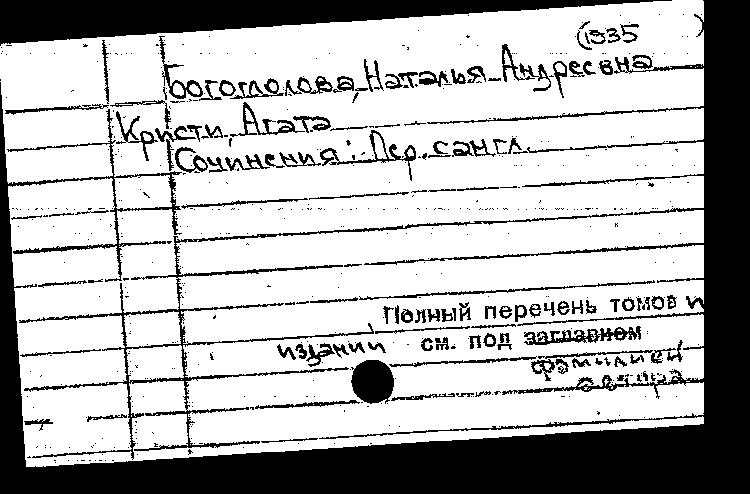 (1935 )
Богомолова, Наталья Андреевна
Кристи, Агата
Сочинения: Пер. с англ.
Полный перечень томов и
изданий см. под заглавием
фамилией
автора